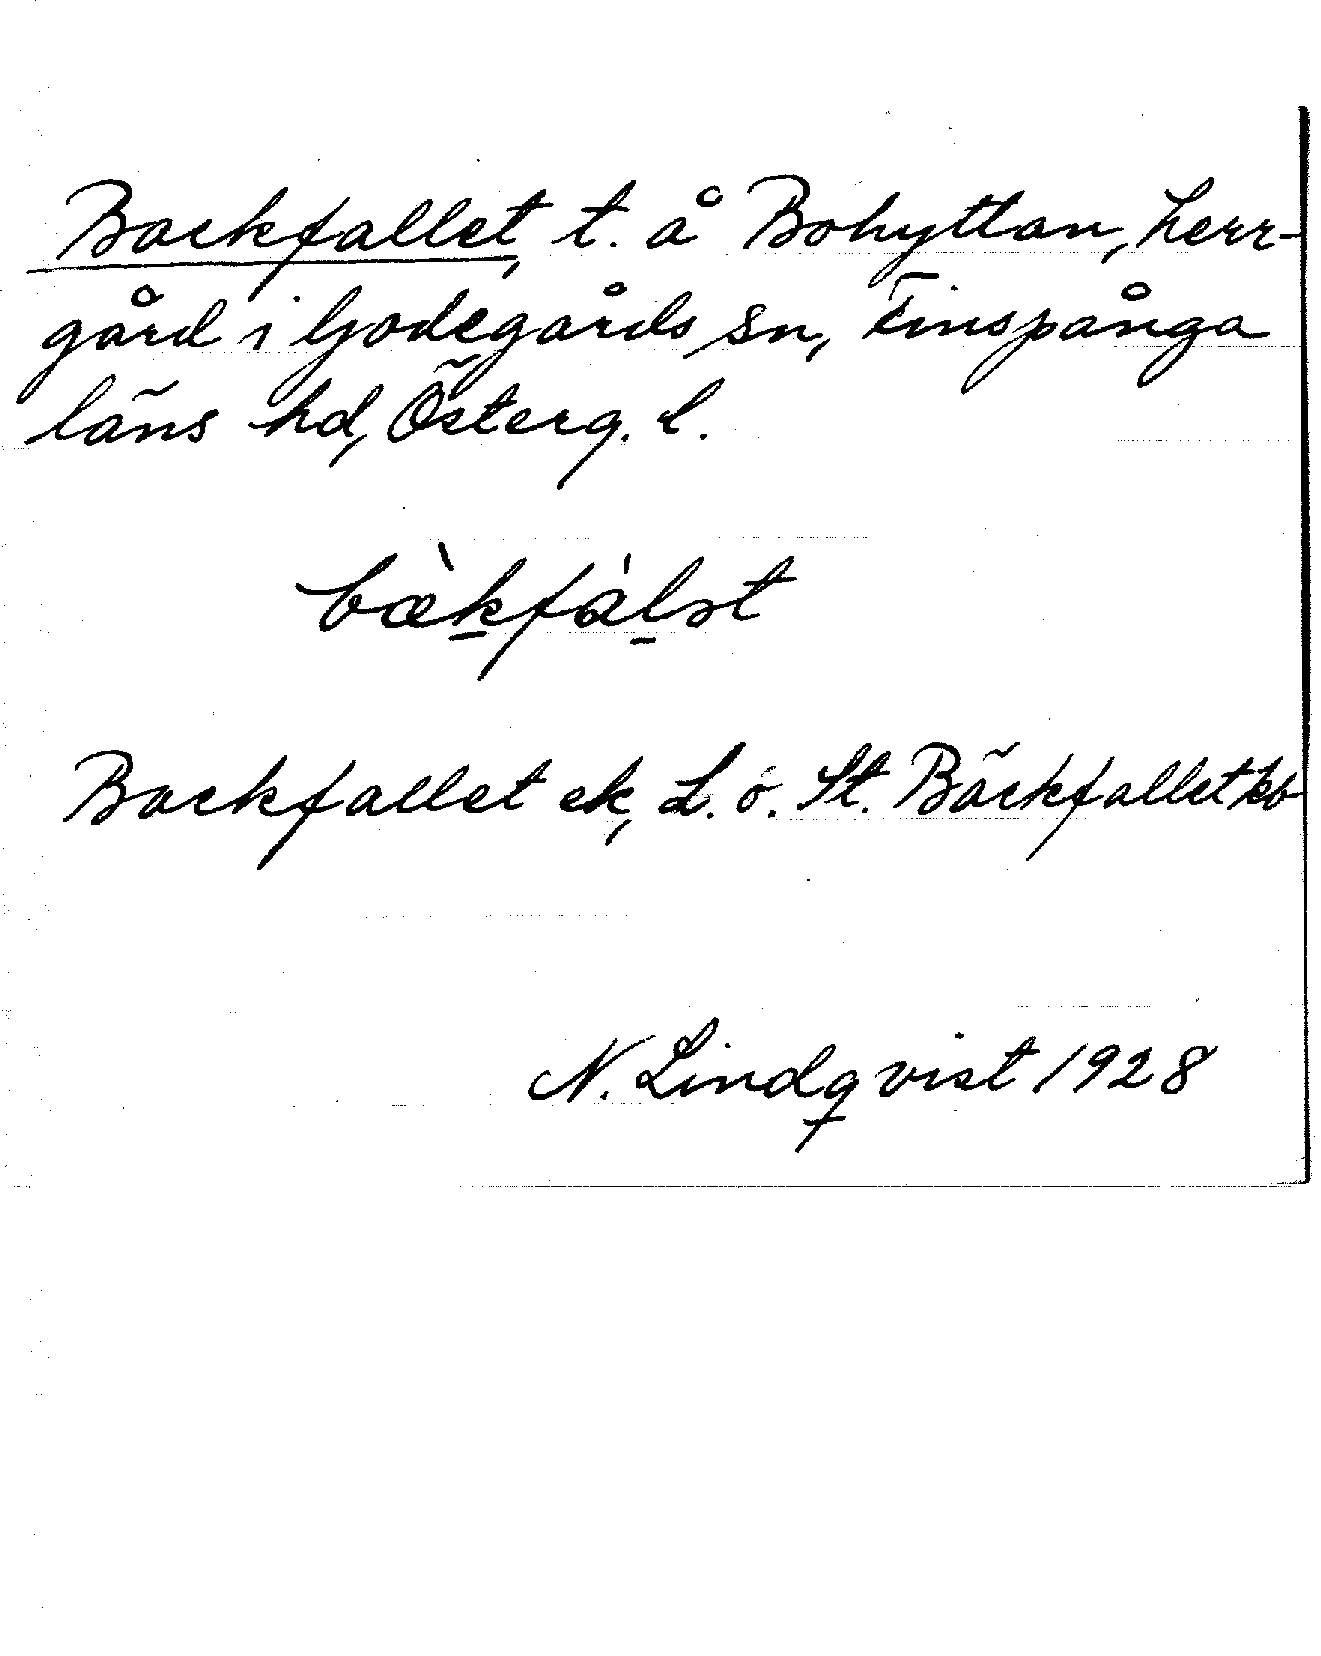 Backfallet, t. å Bohyttan, herr-
gård i Godegårds sn, Finspånga
läns hd, Österg. l.
bæ̀kfàlət
Backfallet ek, L. o. St. Bäckfallet kb
N. Lindqvist 1928